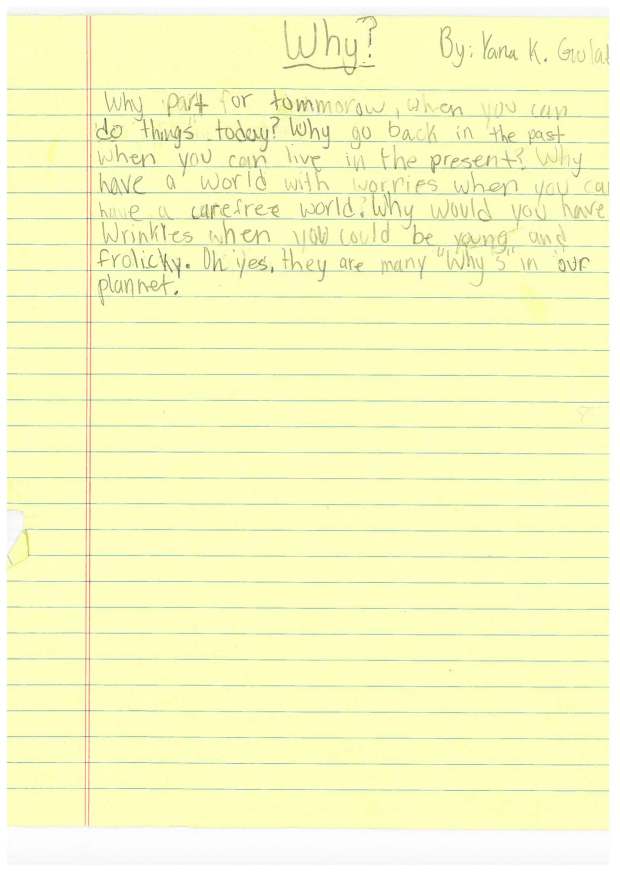 Why?
By: Yana K. Gulat
Why part for tommorow, when you can
do things today? Why go back in the past
when you can live in the present? Why
have a world with worries when you ca
have a carefree world? Why would you have
Wrinkles when you could be young and
frolicky. Oh yes, they are many "Why's" in our
plannet.